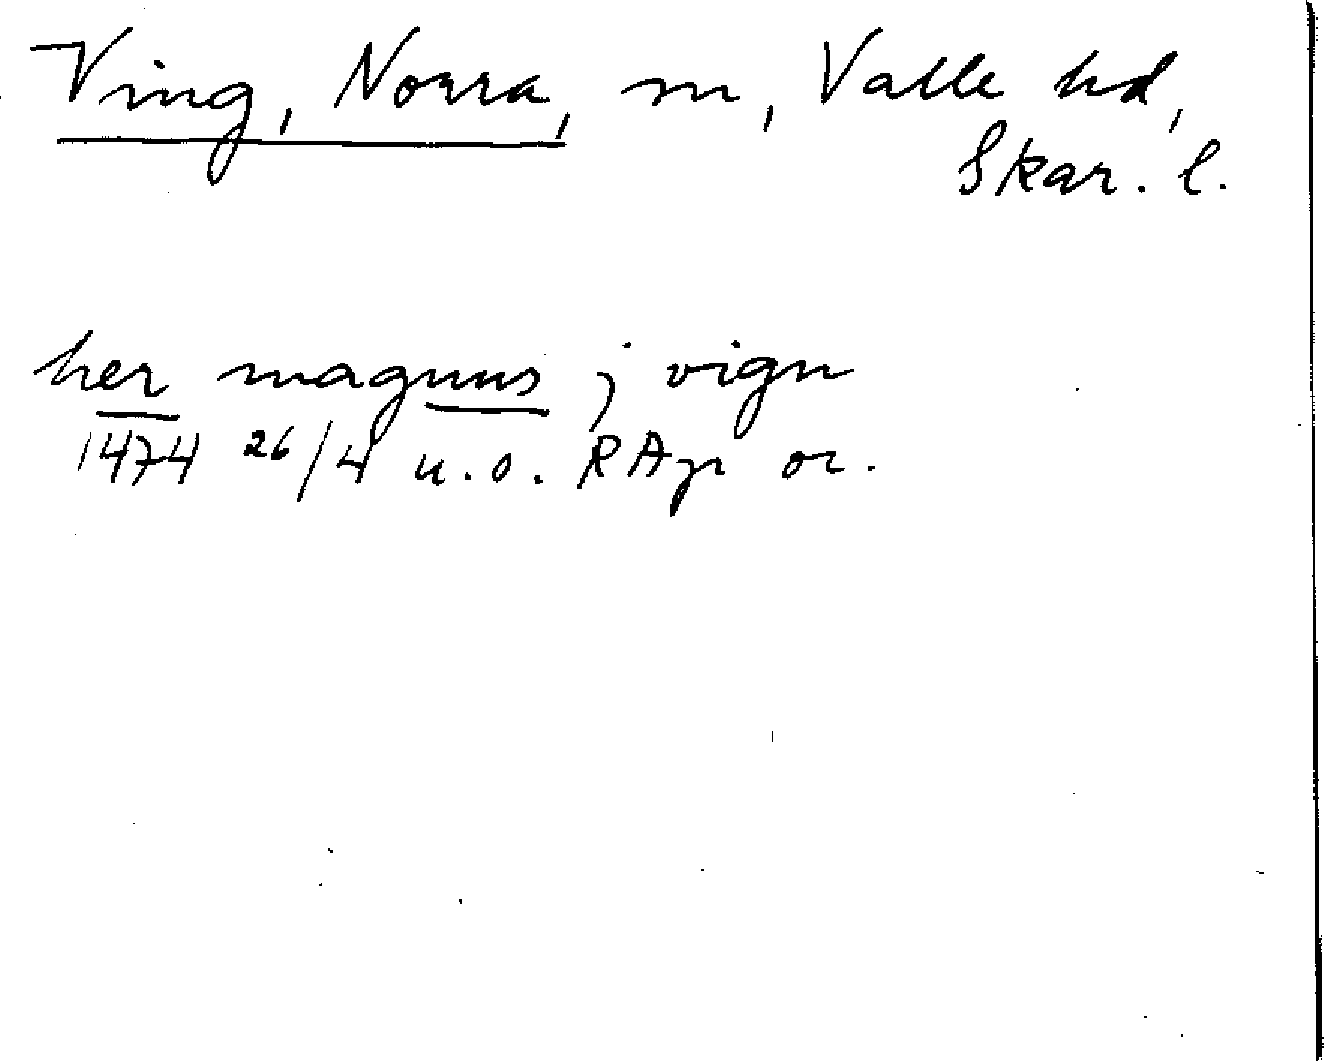 Ving, Norra, sn, Valle hd,
Skar. l.
her magnus j vign
1474 26/4 u.o. RAp or.